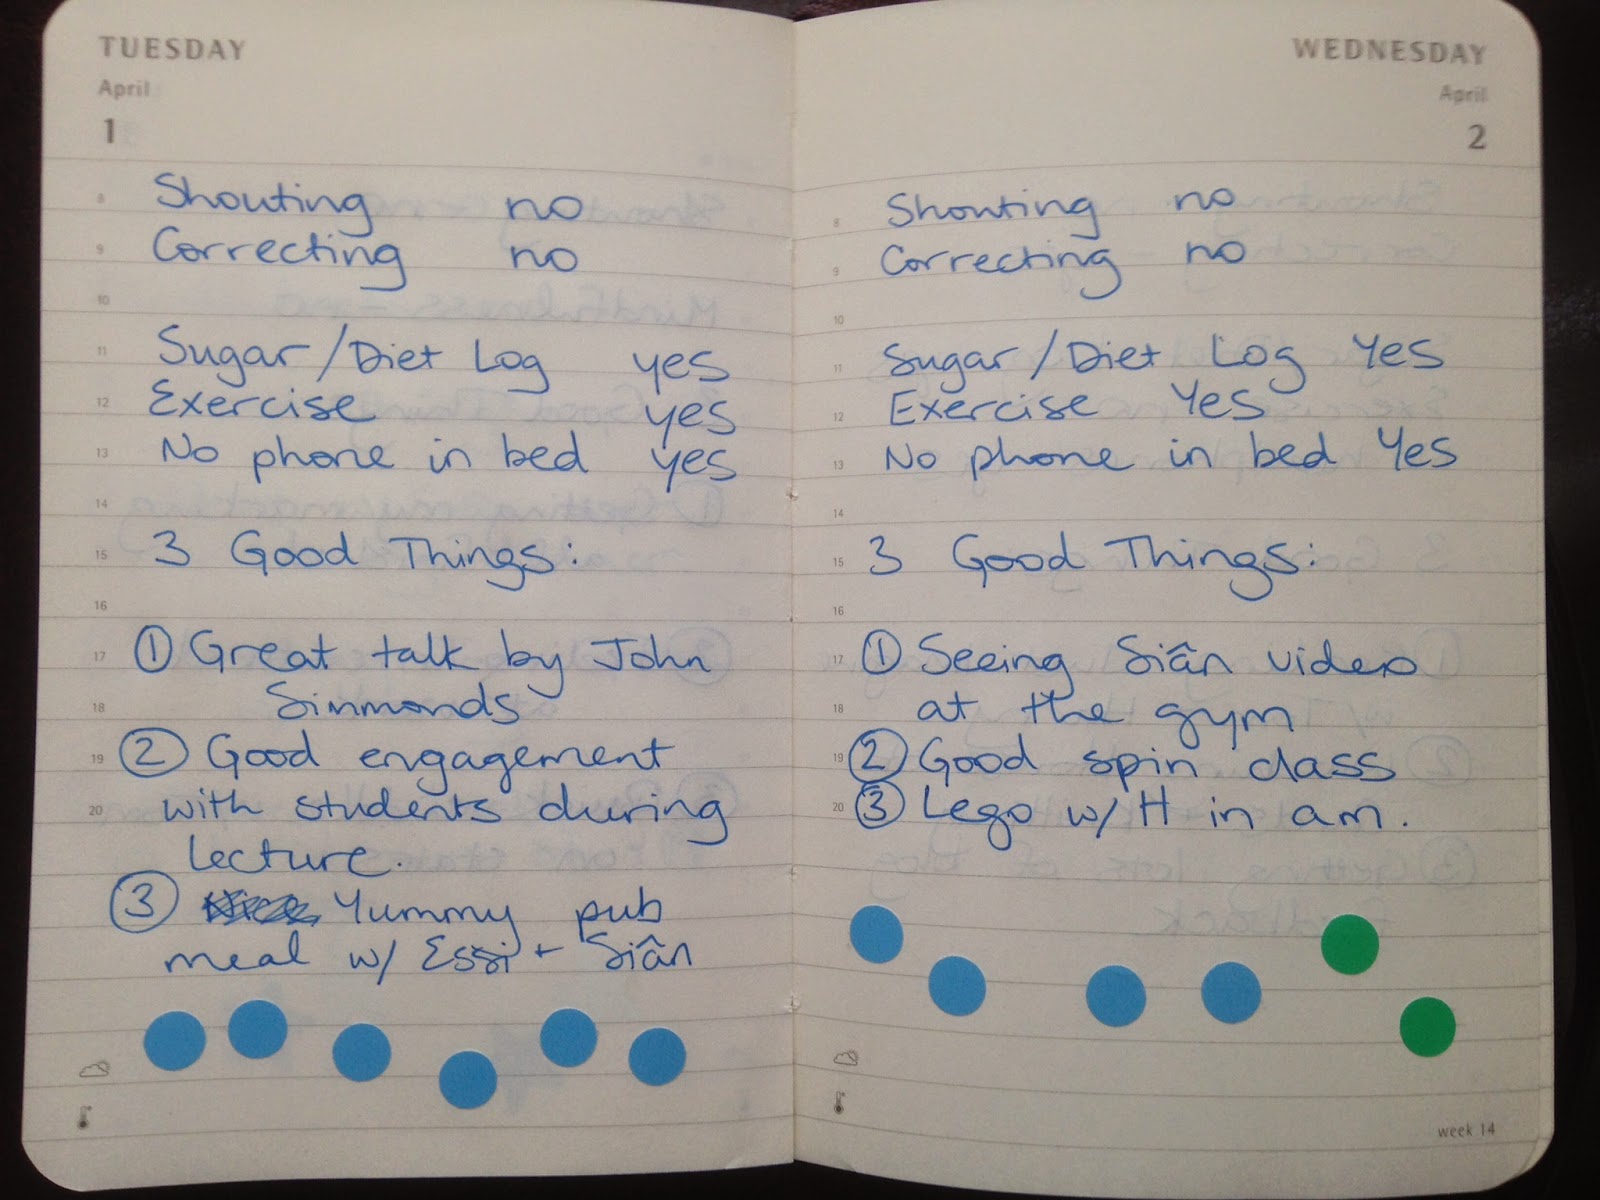 TUESDAY
April
1
8 Shouting no
9 Correcting no
10
11 Sugar/Diet Log yes
12 Exercise yes
13 No phone in bed yes
14
15 3 Good Things:
16
17 ① Great talk by John
18 Simmonds
19 ② Good engagement
20 with students during
lecture.
③ Yummy pub
meal w/ Essi + Siân
WEDNESDAY
April
2
8 Shouting no
9 Correcting no
10
11 Sugar/Diet Log Yes
12 Exercise Yes
13 No phone in bed Yes
14
15 3 Good Things:
16
17 ① Seeing Siân video
18 at the gym
19 ② Good spin class
20 ③ Lego w/ H in am.
week 14